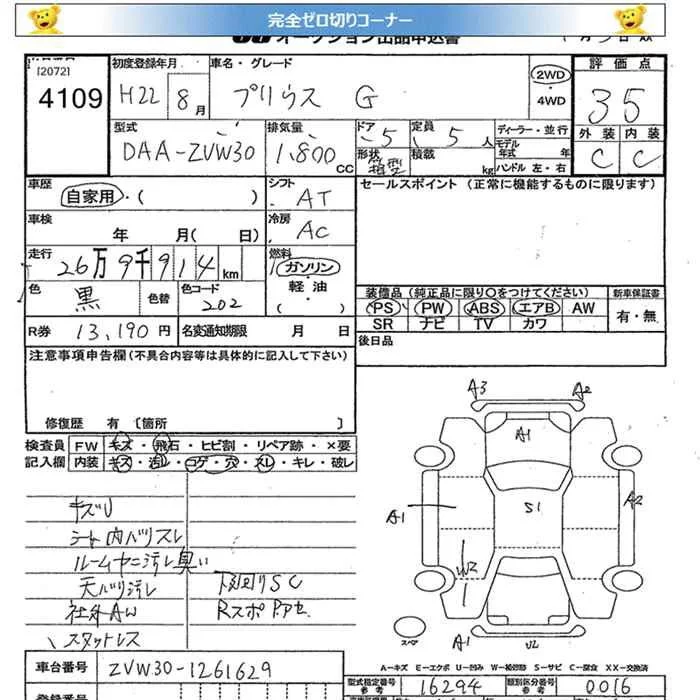 完全ゼロ切りコーナー
オークション出品申込書
[2072]
4109
初度登録年月
H22 8月
車名・グレード
プリウス G
2WD
・
4WD
評価点
35
外装 内装
C C
型式
DAA-ZVW30
排気量
1,800 CC
ドア 5
形状 箱型
定員 5人
積載 kg
ディーラー・並行
モデル年式 年
ハンドル 左・右
車歴
自家用・( )
シフト
AT
セールスポイント (正常に機能するものに限ります)
車検
年 月( 日)
冷房
AC
走行
26万9千914km
燃料
ガソリン
・
軽油
・
( )
色
黒 色替
色コード
202
装備品 (純正品に限り○をつけてください)
PS PW ABS エアB AW
SR ナビ TV カワ
新車保証書
有・無
R券 13,190円
名変通知期限 月 日
後日品
注意事項申告欄(不具合内容等は具体的に記入して下さい)
修復歴 有 〔箇所 〕
検査員 FW キズ・飛石・ヒビ割・リペア跡・×要
記入欄 内装 キズ・汚レ・コゲ・穴・スレ・キレ・破レ
キズU
シート内バリスレ
ルームヤニ汚レ臭い
天バリ汚レ
社外AW
スタットレス
下廻りSC
Rスポ
A3
A2
A1
S1
A1
A2
W2
A1
U2
スペア
A-キズ E-エクボ U-凹み W-補修跡 S-サビ C-腐食 XX-交換済
車台番号
ZVW30-1261629
登録番号
型式指定番号
参考
16294
類別区分番号
参考
0016